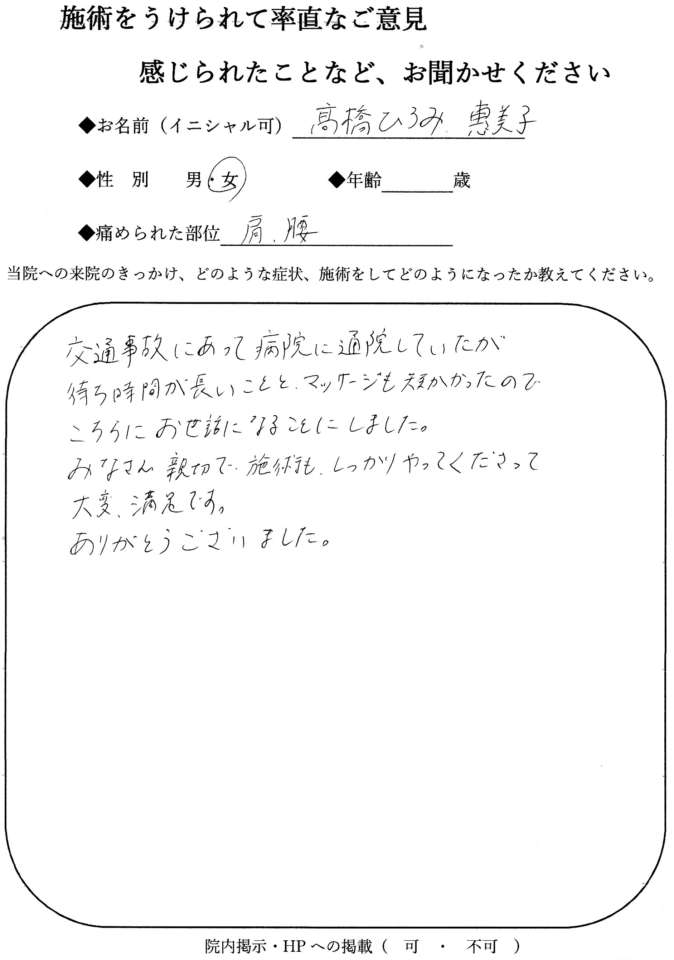 施術をうけられて率直なご意見
感じられたことなど、お聞かせください
◆お名前（イニシャル可） 高橋ひろみ、恵美子
◆性 別 男・女 ◆年齢 歳
◆痛められた部位 肩、腰
当院への来院のきっかけ、どのような症状、施術をしてどのようになったか教えてください。
交通事故にあって病院に通院していたが
待ち時間が長いことと、マッサージも短かかったので
こちらにお世話になることにしました。
みなさん親切で、施術も、しっかりやってくださって
大変、満足です。
ありがとうございました。
院内掲示・HPへの掲載（ 可 ・ 不可 ）